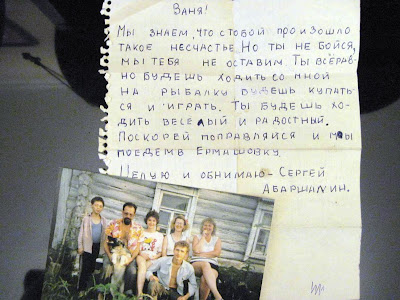 Ваня!
Мы знаем, что с тобой произошло
такое несчастье. Но ты не бойся,
мы тебя не оставим. Ты всёрав-
но будешь ходить со мной
на рыбалку будешь купать-
ся и играть. Ты будешь хо-
дить весёлый и радостный.
Поскорей поправляйся и мы
поедем в Ермашовку.
Целую и обнимаю - Сергей
Абаршалин.